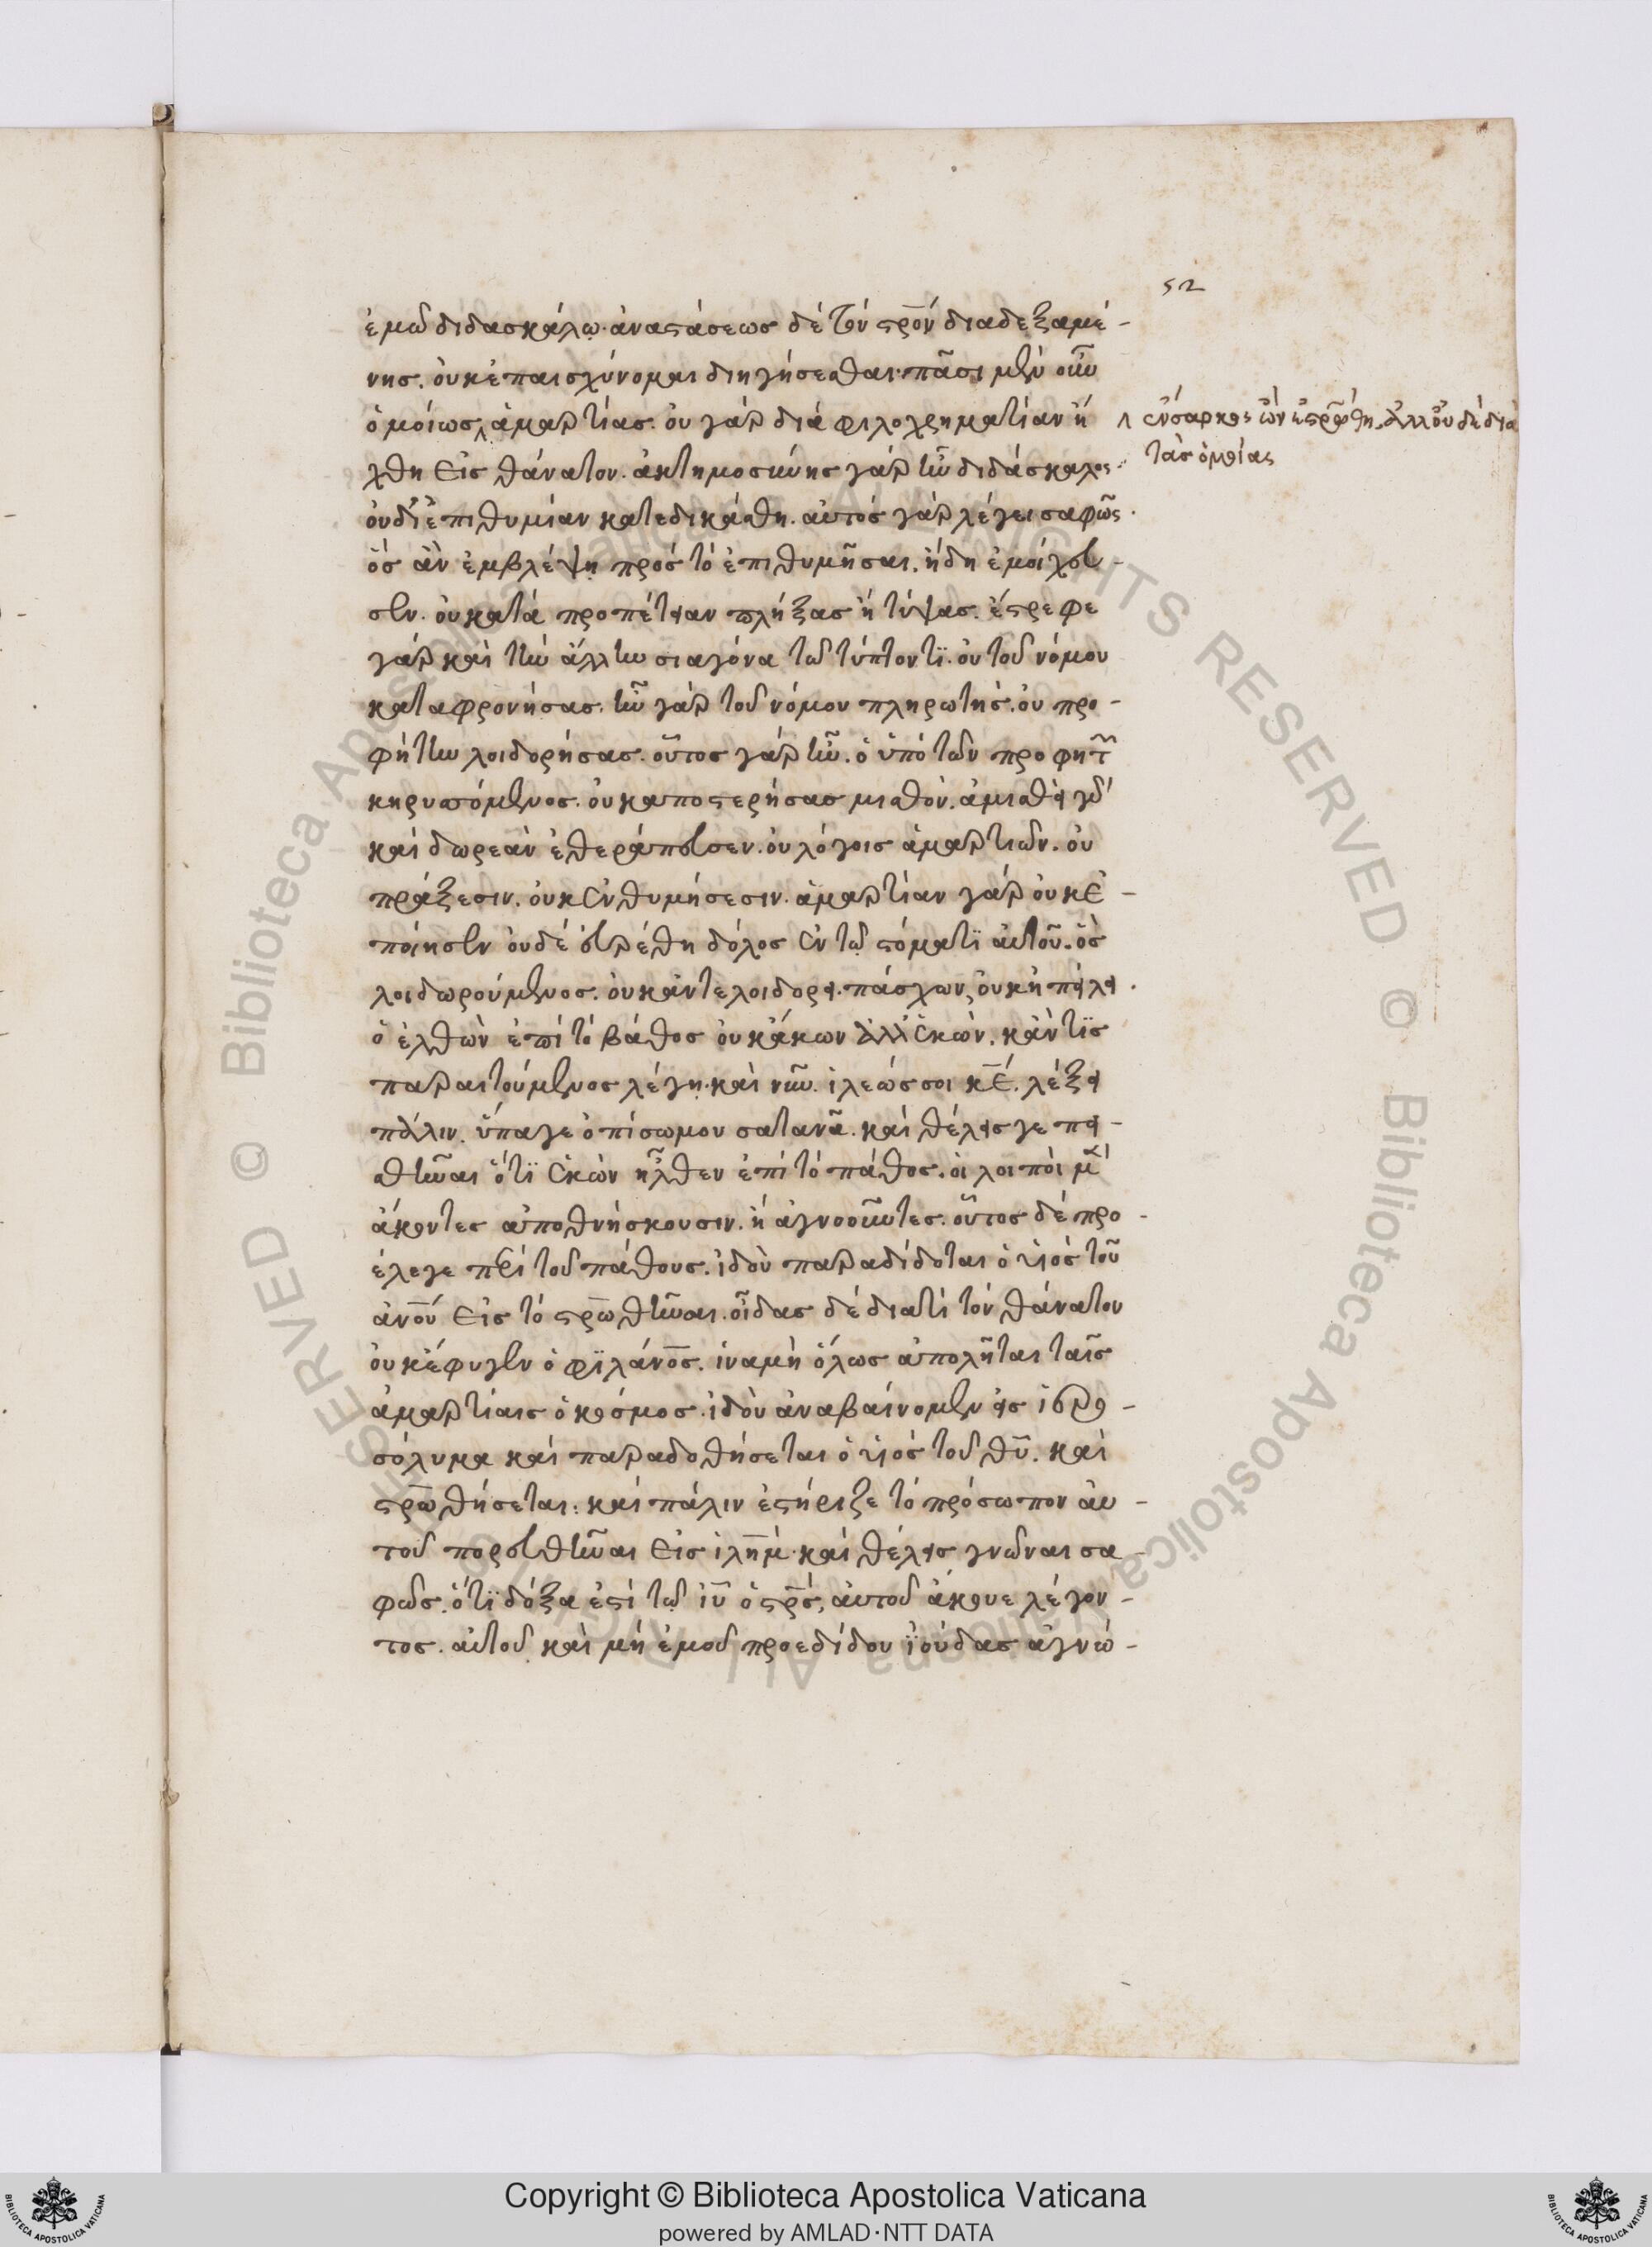 52
ἐμῶ διδασκάλῳ· ἀναστάσεως δέ τὸν στρο̅ν διαδεξαμέ-
νης. ὀυκ ἐπαισχύνομαι διηγήσεσθαι· πᾶσι μὲν οὖν
ὁμοίως ⸌ ἁμαρτίας. ὀυ γάρ διά φιλοχρηματίαν ἤ
⸌ ἔνσαρκος ὤν ἐστρω̅θη, ἀλλ' ὀυδὲ διὰ
τὰς ὁμοίας
χθη εἰς θάνατον. ἀκτημοσύνης γάρ ἦν διδάσκαλος·
ὀυδἰ ἐπιθυμίαν κατεδικάσθη. αὐτός γάρ λέγει σαφῶς·
ὅς ἄν ἐμβλέψη πρός τό ἐπιθυμῆσαι. ἤδη ἐμοίχευ-
σεν. ὀυ κατά προπέτειαν πλήξας ἤ τύψας. ἔστρεφε
γάρ καὶ τὴν ἄλλην σιαγόνα τῶ τύπτοντϊ. ὀυ τοῦ νόμου
καταφρονήσας. ἦν γάρ τοῦ νόμου πληρωτής. ὀυ προ-
φήτην λοιδορήσας. οὗτος γάρ ἦν. ὁ ὑπό τῶν προφητ͂
κηρυσσόμενος. ὀυκ αποστερήσας μισθόν. ἀμισθεὶ γὰρ
καί δωρεὰν ἐθεράπευσεν. ὀυ λόγοις ἁμαρτιῶν. ὀυ
πράξεσιν. ὀυκ ἐνθυμήσεσιν. ἁμαρτίαν γάρ ὀυκ ἐ-
ποίησεν ὀυδέ ἐυρέθη δόλος ἐν τῷ στόματϊ αὐτοῦ. ὅς
λοιδωρούμενος. ὀυκ ἀντελοιδορει. πάσχων, ὀυκ ἠπείλει.
ὁ ἐλθὼν ἐπί τό βάθος ὀυκ ἄκων ἀλλ' ἑκών. κἄν τϊς
παραιτούμενος λέγῃ. καὶ νῦν. ἱλεώς σοι κ̅ε. λέξει
πάλιν. ὕπαγε ὀπίσωμου σατανᾶ. καί θέλεις γε πει-
σθῆναι ὅτϊ ἑκὼν ἦλθεν ἐπί τό πάθος. ὁι λοιποὶ μὲν
ἄκοντες αποθνήσκουσιν. ἤ ἀγνοοῦντες. οὗτος δέ προ-
έλεγε περὶ τοῦ πάθους. ἰδοὺ παραδίδοται ὁ υἱός τοῦ
ἀνο̅υ εἰς τό στρω̅θῆναι. οἶδας δέ διατί τόν θάνατον
ὀυκ ἔφυγεν ὁ φϊλάνο̅ς. ἵνα μὴ ὅλως απολῆται ταῖς
ἁμαρτίαις ὁ κόσμος. ἰδοὺ ἀναβαίνομεν εἰς ἱερο-
σόλυμα καί παραδοθήσεται ὁ υἱός τοῦ θ̅υ. καί
στρω̅θήσεται: καί πάλιν ἐστήριζε τό πρόσωπον ἀυ-
τοῦ πορευθῆναι εἰς ἱλη̅μ. καί θέλεις γνῶναι σα-
φῶς. ὅτϊ δόξα ἐστί τῷ ἰ̅υ ὁ στρ̅ς, ἀυτοῦ ἄκουε λέγον-
τος. αὐτοῦ καὶ μή ἐμοῦ. προεδίδου ἰούδας ἀγνώ-